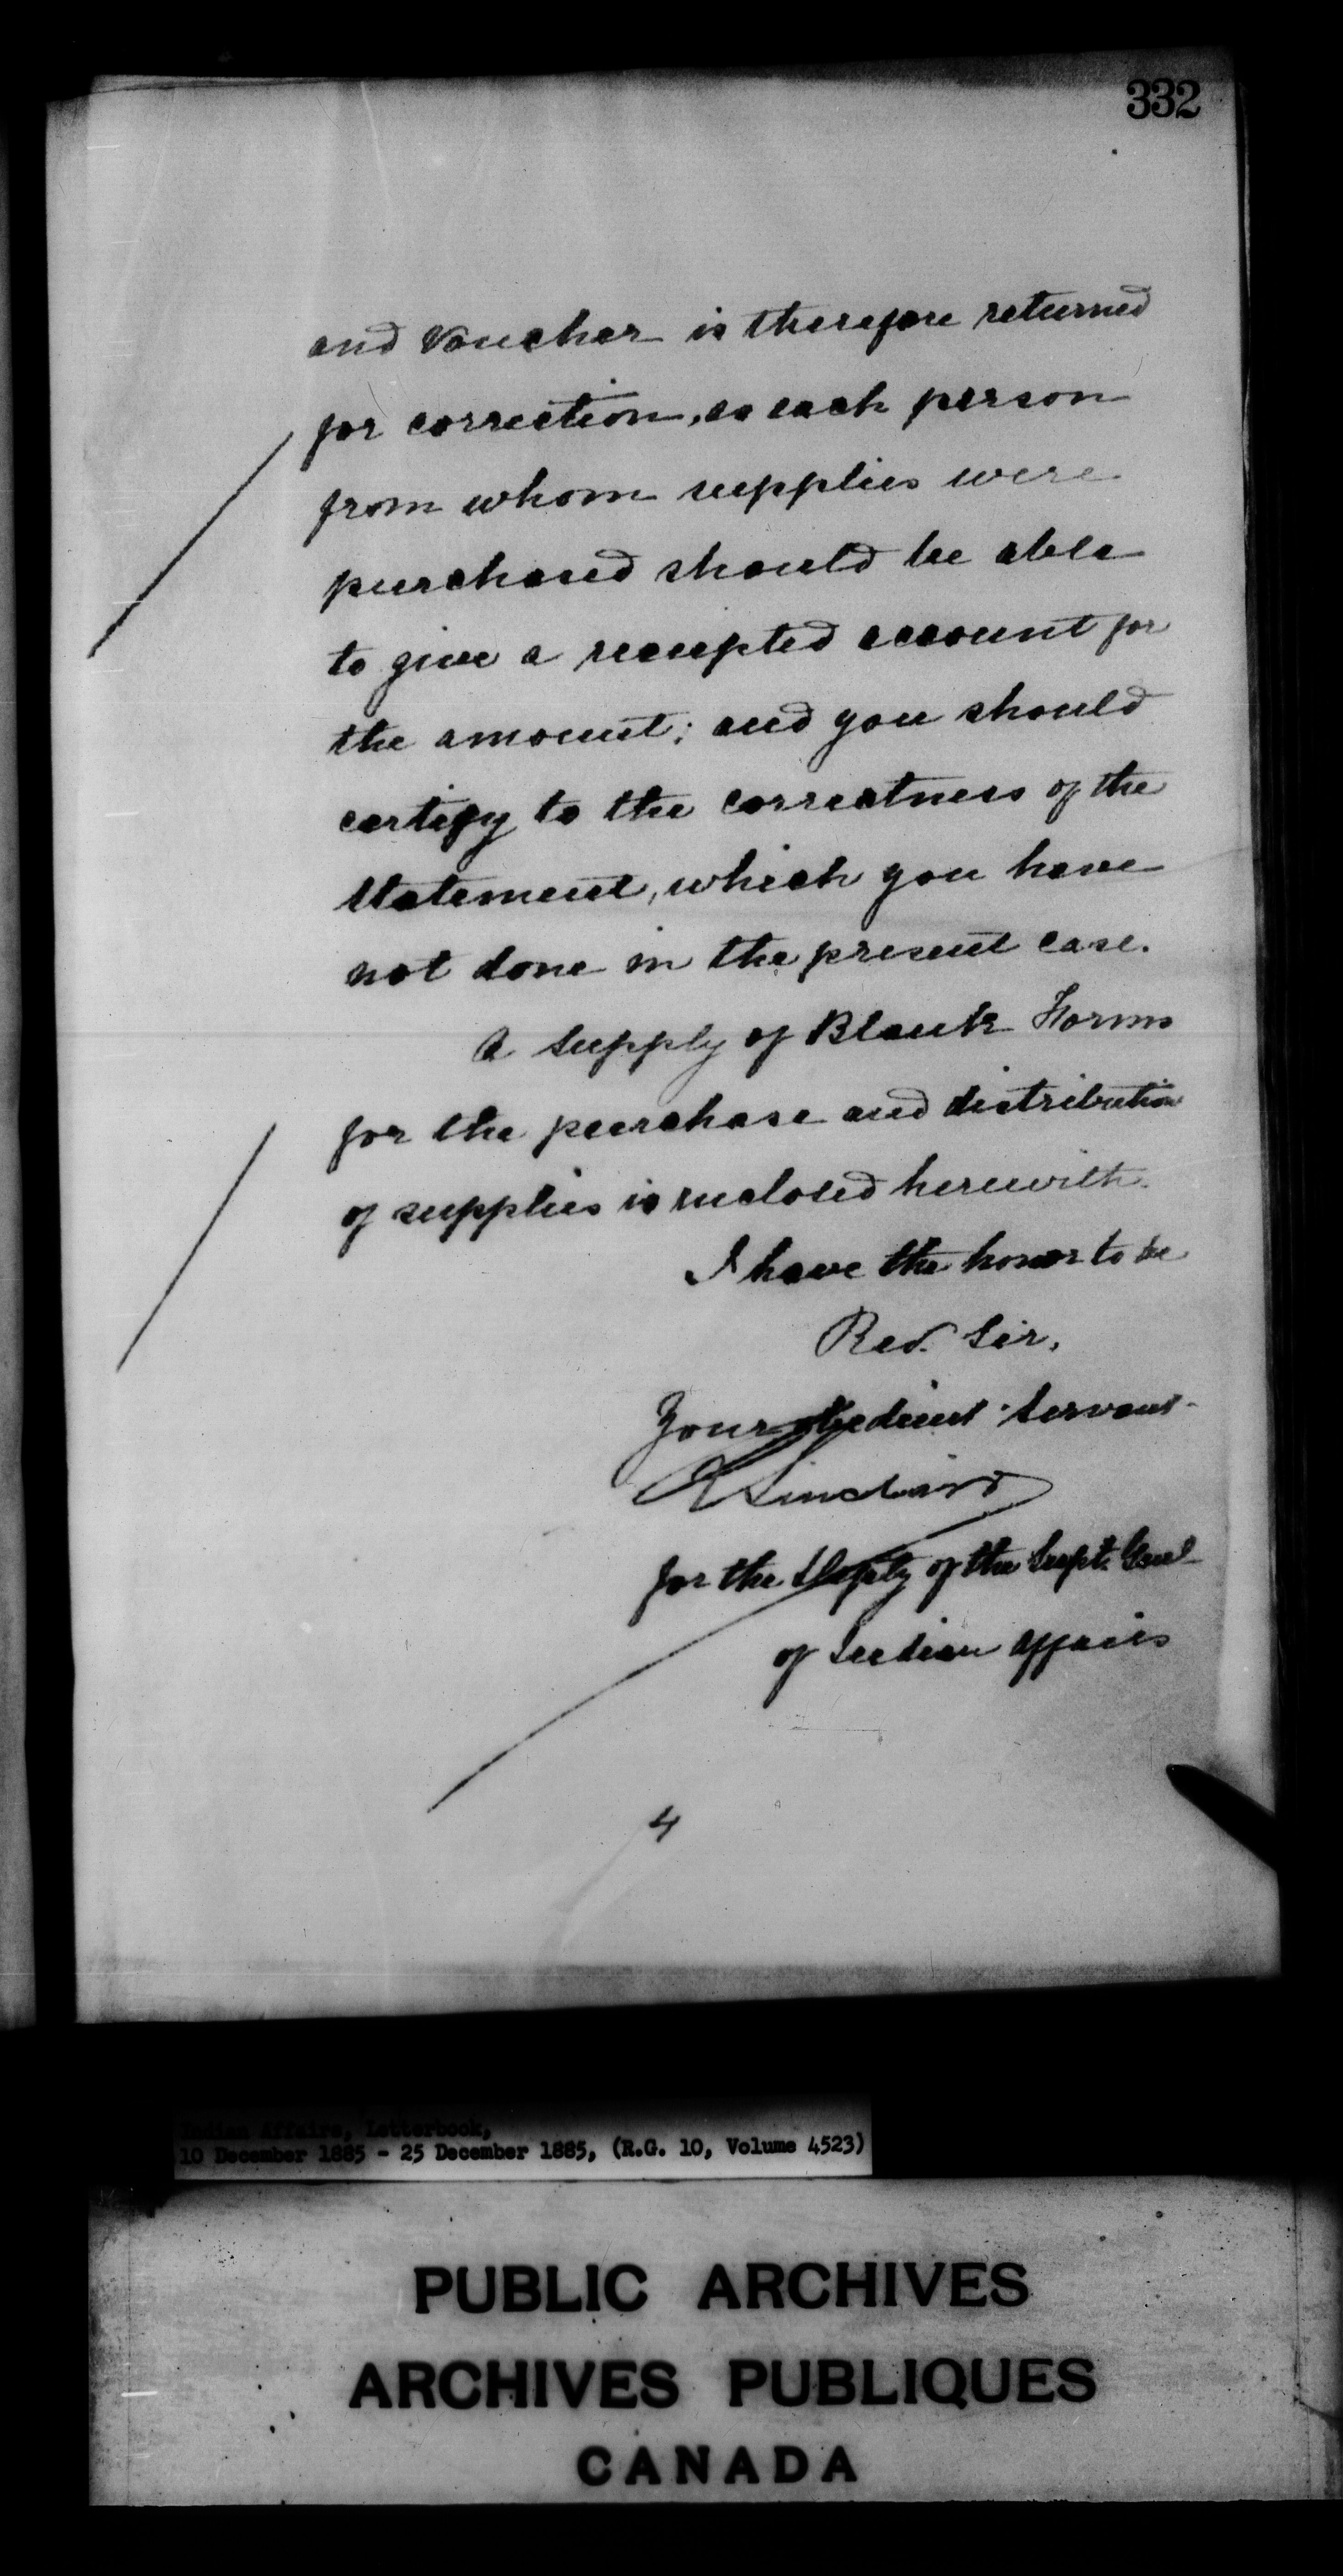 332
and Voucher is therefore returned
for correction, as each person
from whom supplies were
purchased should be able
to give a receipted account for
the amount; and you should
certify to the correctness of the
statement, which you have
not done in the present case.
A supply of Blank Forms
for the purchase and distribution
of supplies is enclosed herewith.
I have the honor to be
Rev. Sir,
Your obedient Servant
R Sinclair
for the Depty of the Supt. Genl
of Indian Affairs
4
Indian Affairs, Letterbook,
10 December 1885 - 25 December 1885, (R.G. 10, Volume 4523)
PUBLIC ARCHIVES
ARCHIVES PUBLIQUES
CANADA